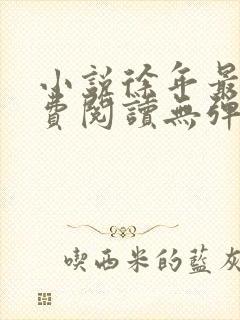 小説徐年最
費閱讀無彈
喫西米的藍灰